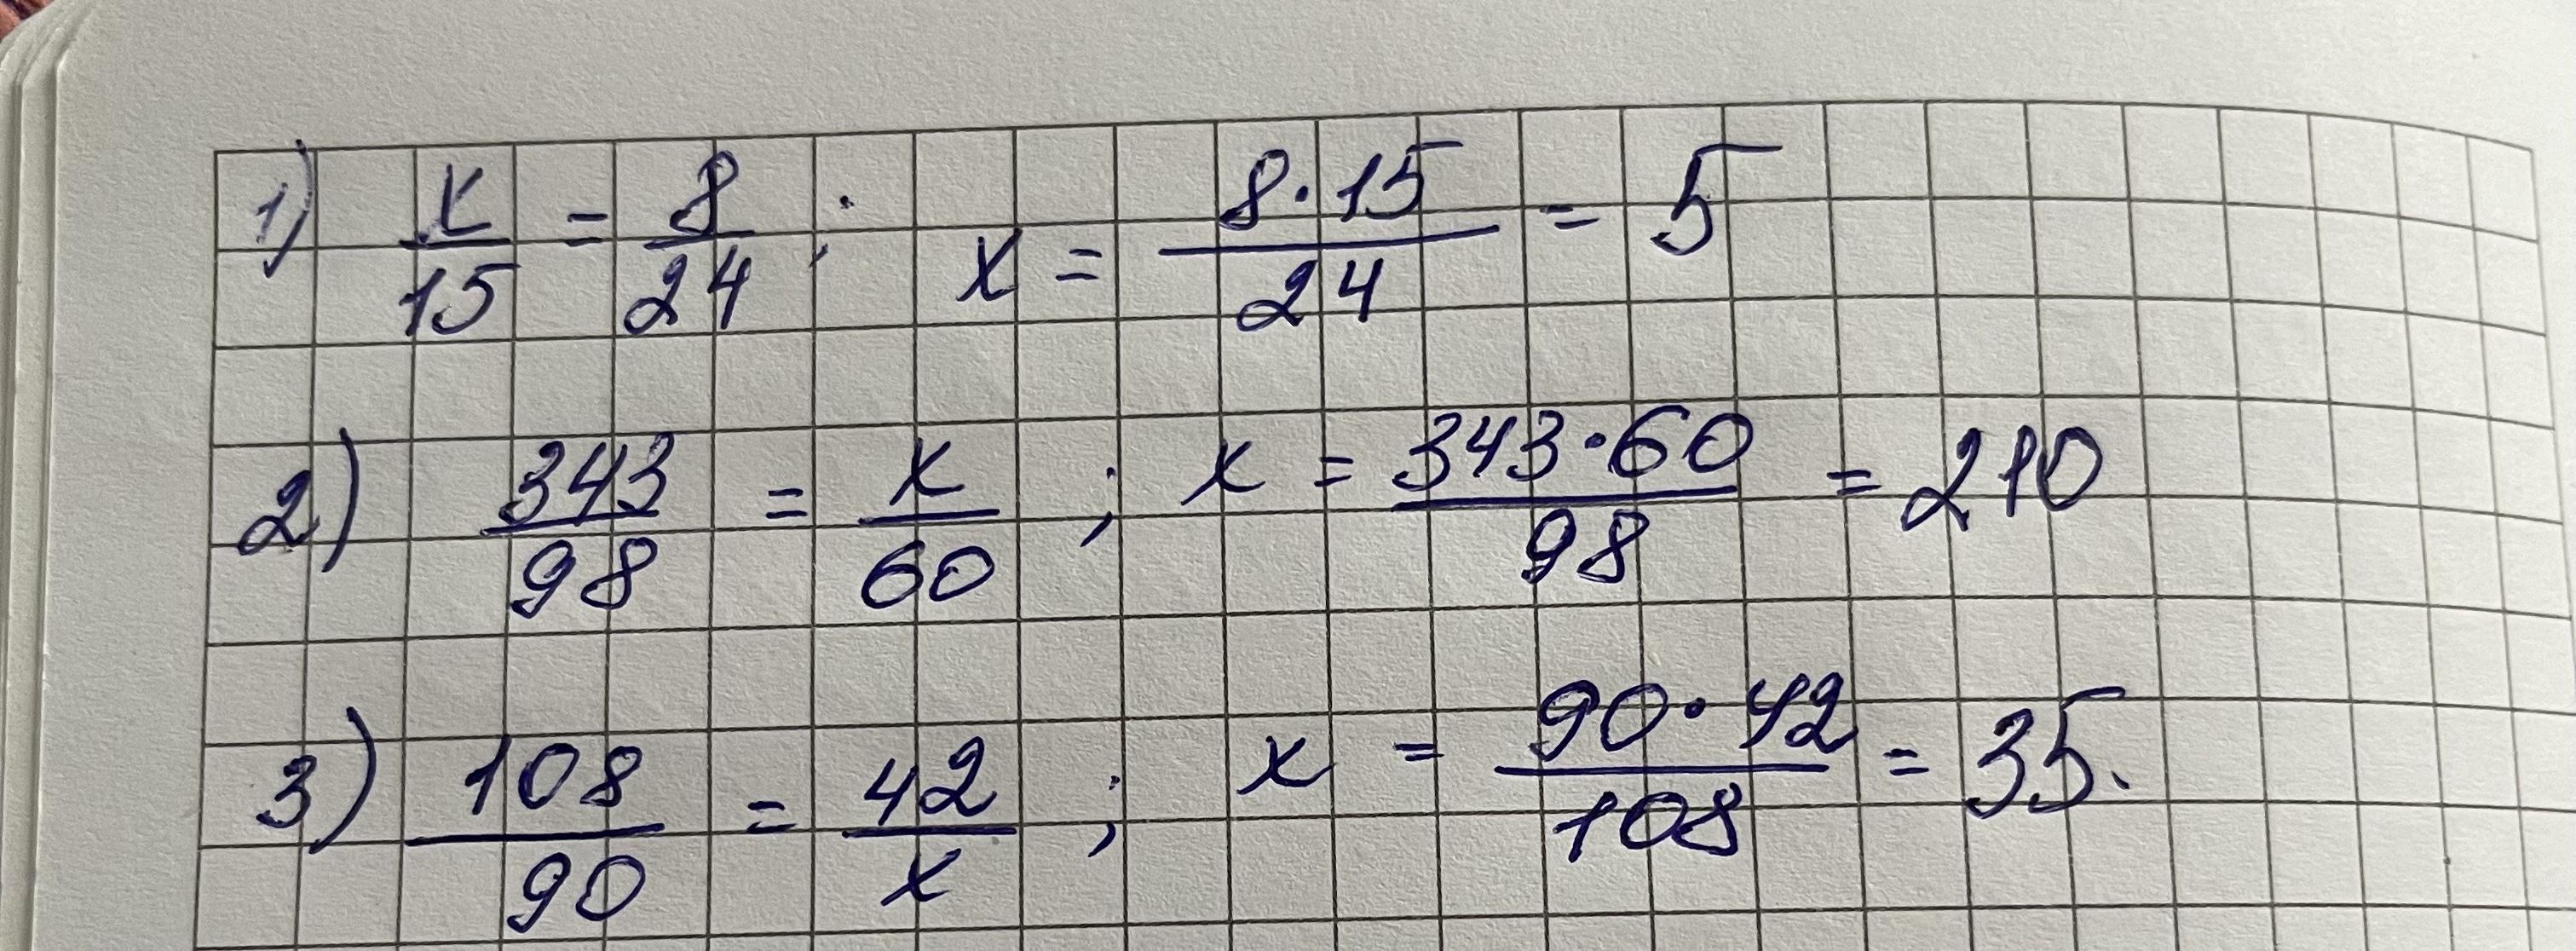 1) x/15 = 8/24 ; x = 8·15/24 = 5
2) 343/98 = x/60 ; x = 343·60/98 = 210
3) 108/90 = 42/x ; x = 90·42/108 = 35.